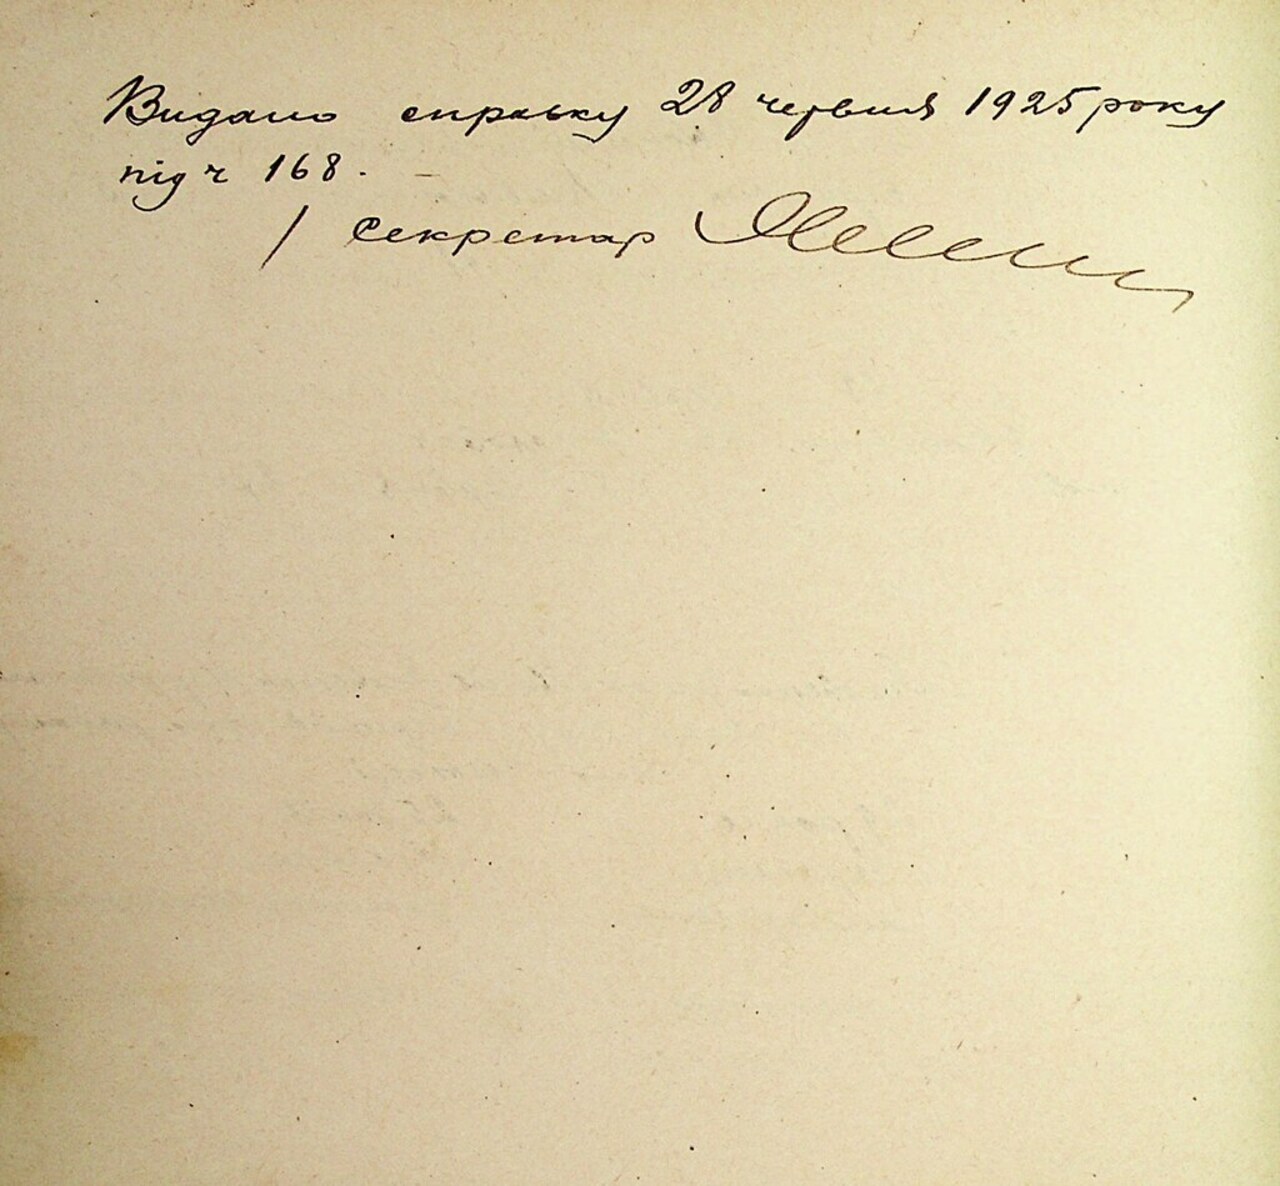 Видано справку 28 червня 1925 року
під ч 168. –
/ Секретар